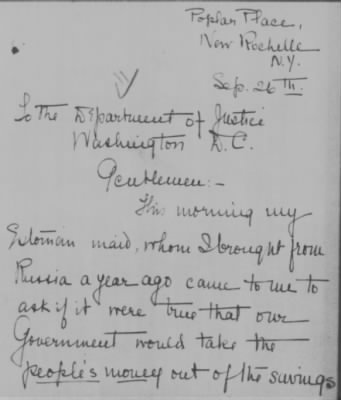 Poplar Place,
New Rochelle
N.Y.
Sep. 26th.
To the Department of Justice
Washington D.C.
Gentlemen:-
This morning my
Estonian maid, whom I brought from
Russia a year ago came to me to
ask if it were true that our
Government would take the
people's money out of the savings